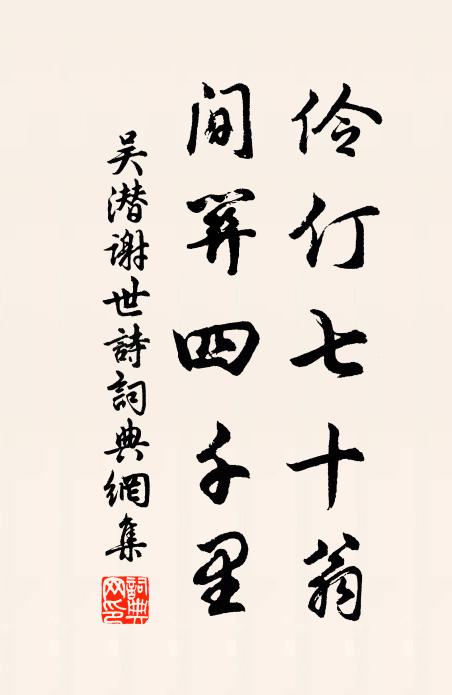 伶仃七十翁
间关四千里
吴潜谢世詩詞典網集
詞典網印